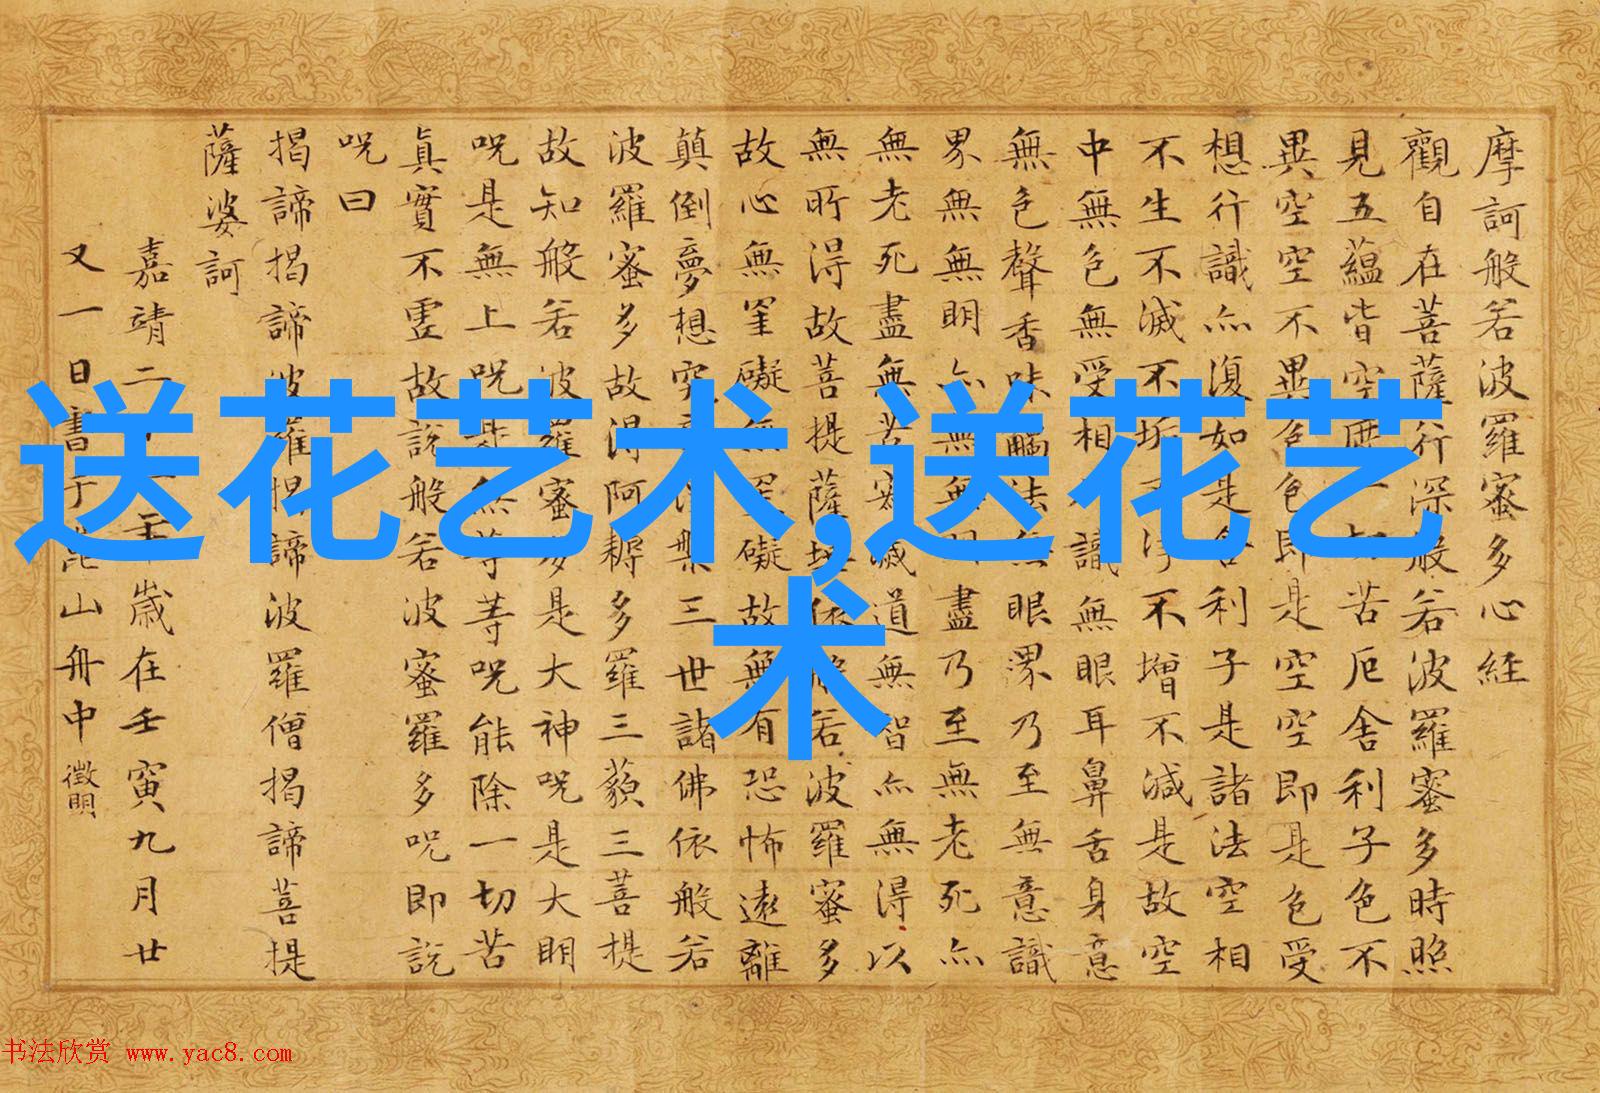 送花艺术,送花艺
术
摩訶般若波羅蜜多心経
觀自在菩薩行深般若波羅蜜多時照
見五蘊皆空度一切苦厄舍利子色不
異空空不異色色即是空空即是色受
想行識亦復如是舍利子是諸法空相
不生不滅不垢不淨不增不減是故空
中無色無受相識無眼耳鼻舌身意
無色聲香味觸法無眼界乃至無意識
界無無明亦無無明盡乃至無老死亦
無老死盡無苦寂滅道無智亦無得以
無所得故菩提薩埵依般若波羅蜜多
故心無罣礙無罣礙故無有恐怖遠離
顛倒夢想究竟涅槃三世諸佛依般若
波羅蜜多故得阿耨多羅三藐三菩提
故知般若波羅蜜多是大神咒是大明
咒是無上咒是無等等咒能除一切苦
真實不虛故說般若波羅蜜多咒即說
咒曰
揭諦揭諦波羅揭諦波羅僧揭諦菩提
薩婆訶
嘉靖二十一年歲在壬寅九月廿
又一日書于崑山舟中 徵明
书法欣赏 www.yac8.com